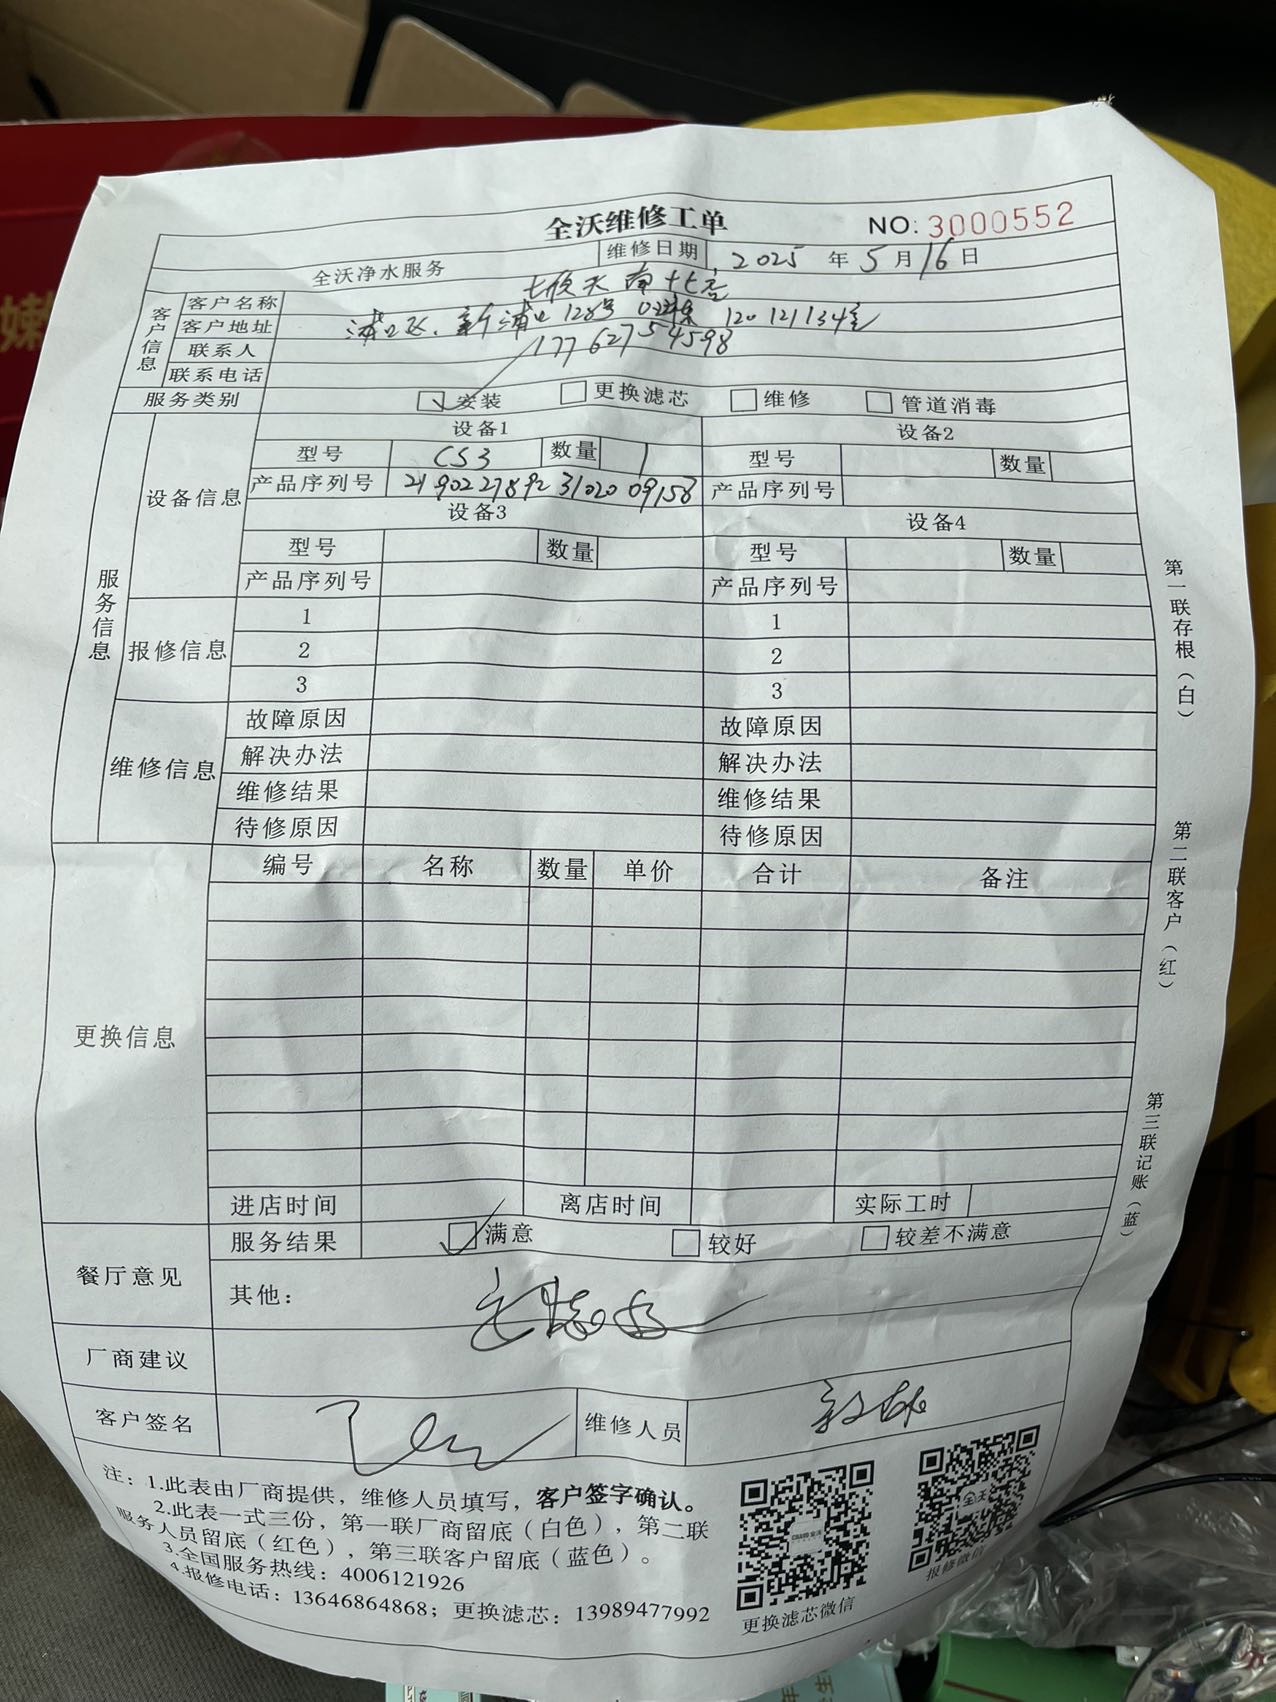 全沃维修工单
NO: 3000552
全沃净水服务 维修日期 2025 年 5 月 16 日
客户信息
客户名称
客户地址 浦口区 新浦口128号
联系人 17762754598
联系电话
服务类别 安装 更换滤芯 维修 管道消毒
服务信息
设备信息
设备1 设备2
型号 CS3 数量 1 型号 数量
产品序列号 产品序列号
设备3 设备4
型号 数量 型号 数量
产品序列号 产品序列号
报修信息
1 1
2 2
3 3
维修信息
故障原因 故障原因
解决办法 解决办法
维修结果 维修结果
待修原因 待修原因
更换信息
编号 名称 数量 单价 合计 备注
进店时间 离店时间 实际工时
餐厅意见
服务结果 满意 较好 较差不满意
其他：
厂商建议
客户签名 维修人员
注：1.此表由厂商提供，维修人员填写，客户签字确认。
2.此表一式三份，第一联厂商留底（白色），第二联
服务人员留底（红色），第三联客户留底（蓝色）。
3.全国服务热线：4006121926
4.报修电话：13646864868；更换滤芯：13989477992
更换滤芯微信
报修微信
第一联存根（白）
第二联客户（红）
第三联记账（蓝）
嫩